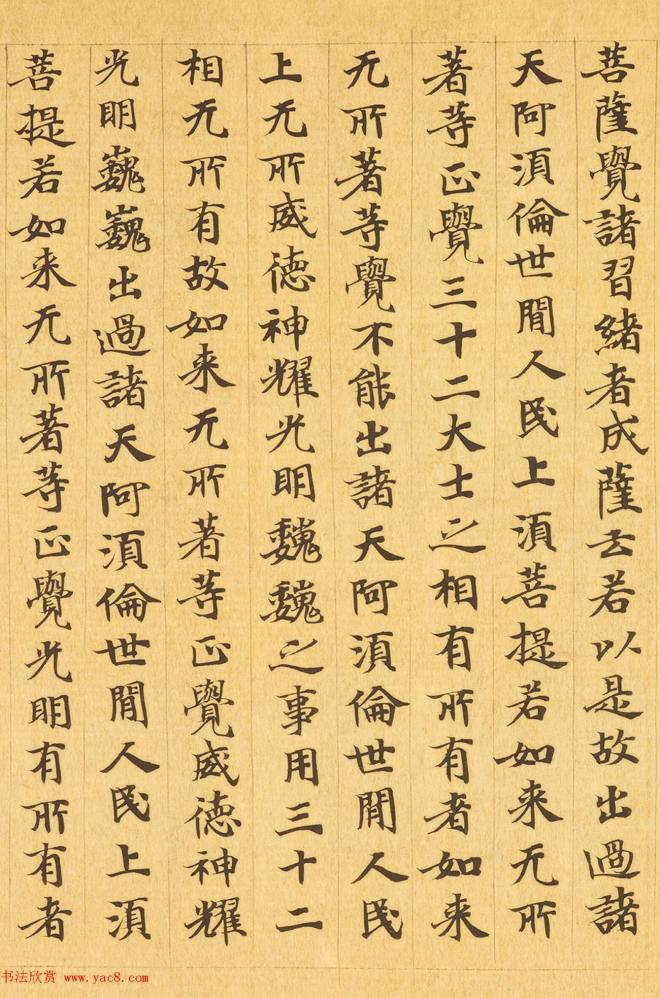 菩薩覺諸習緒者成薩云若以是故出過諸
天阿須倫世間人民上須菩提若如来无所
著等正覺三十二大士之相有所有者如来
无所著等覺不能出諸天阿須倫世間人民
上无所威德神耀光明巍巍之事用三十二
相无所有故如来无所著等正覺威德神耀
光明巍巍出過諸天阿須倫世間人民上須
菩提若如来无所著等正覺光明有所有者
书法欣赏 www.yac8.com